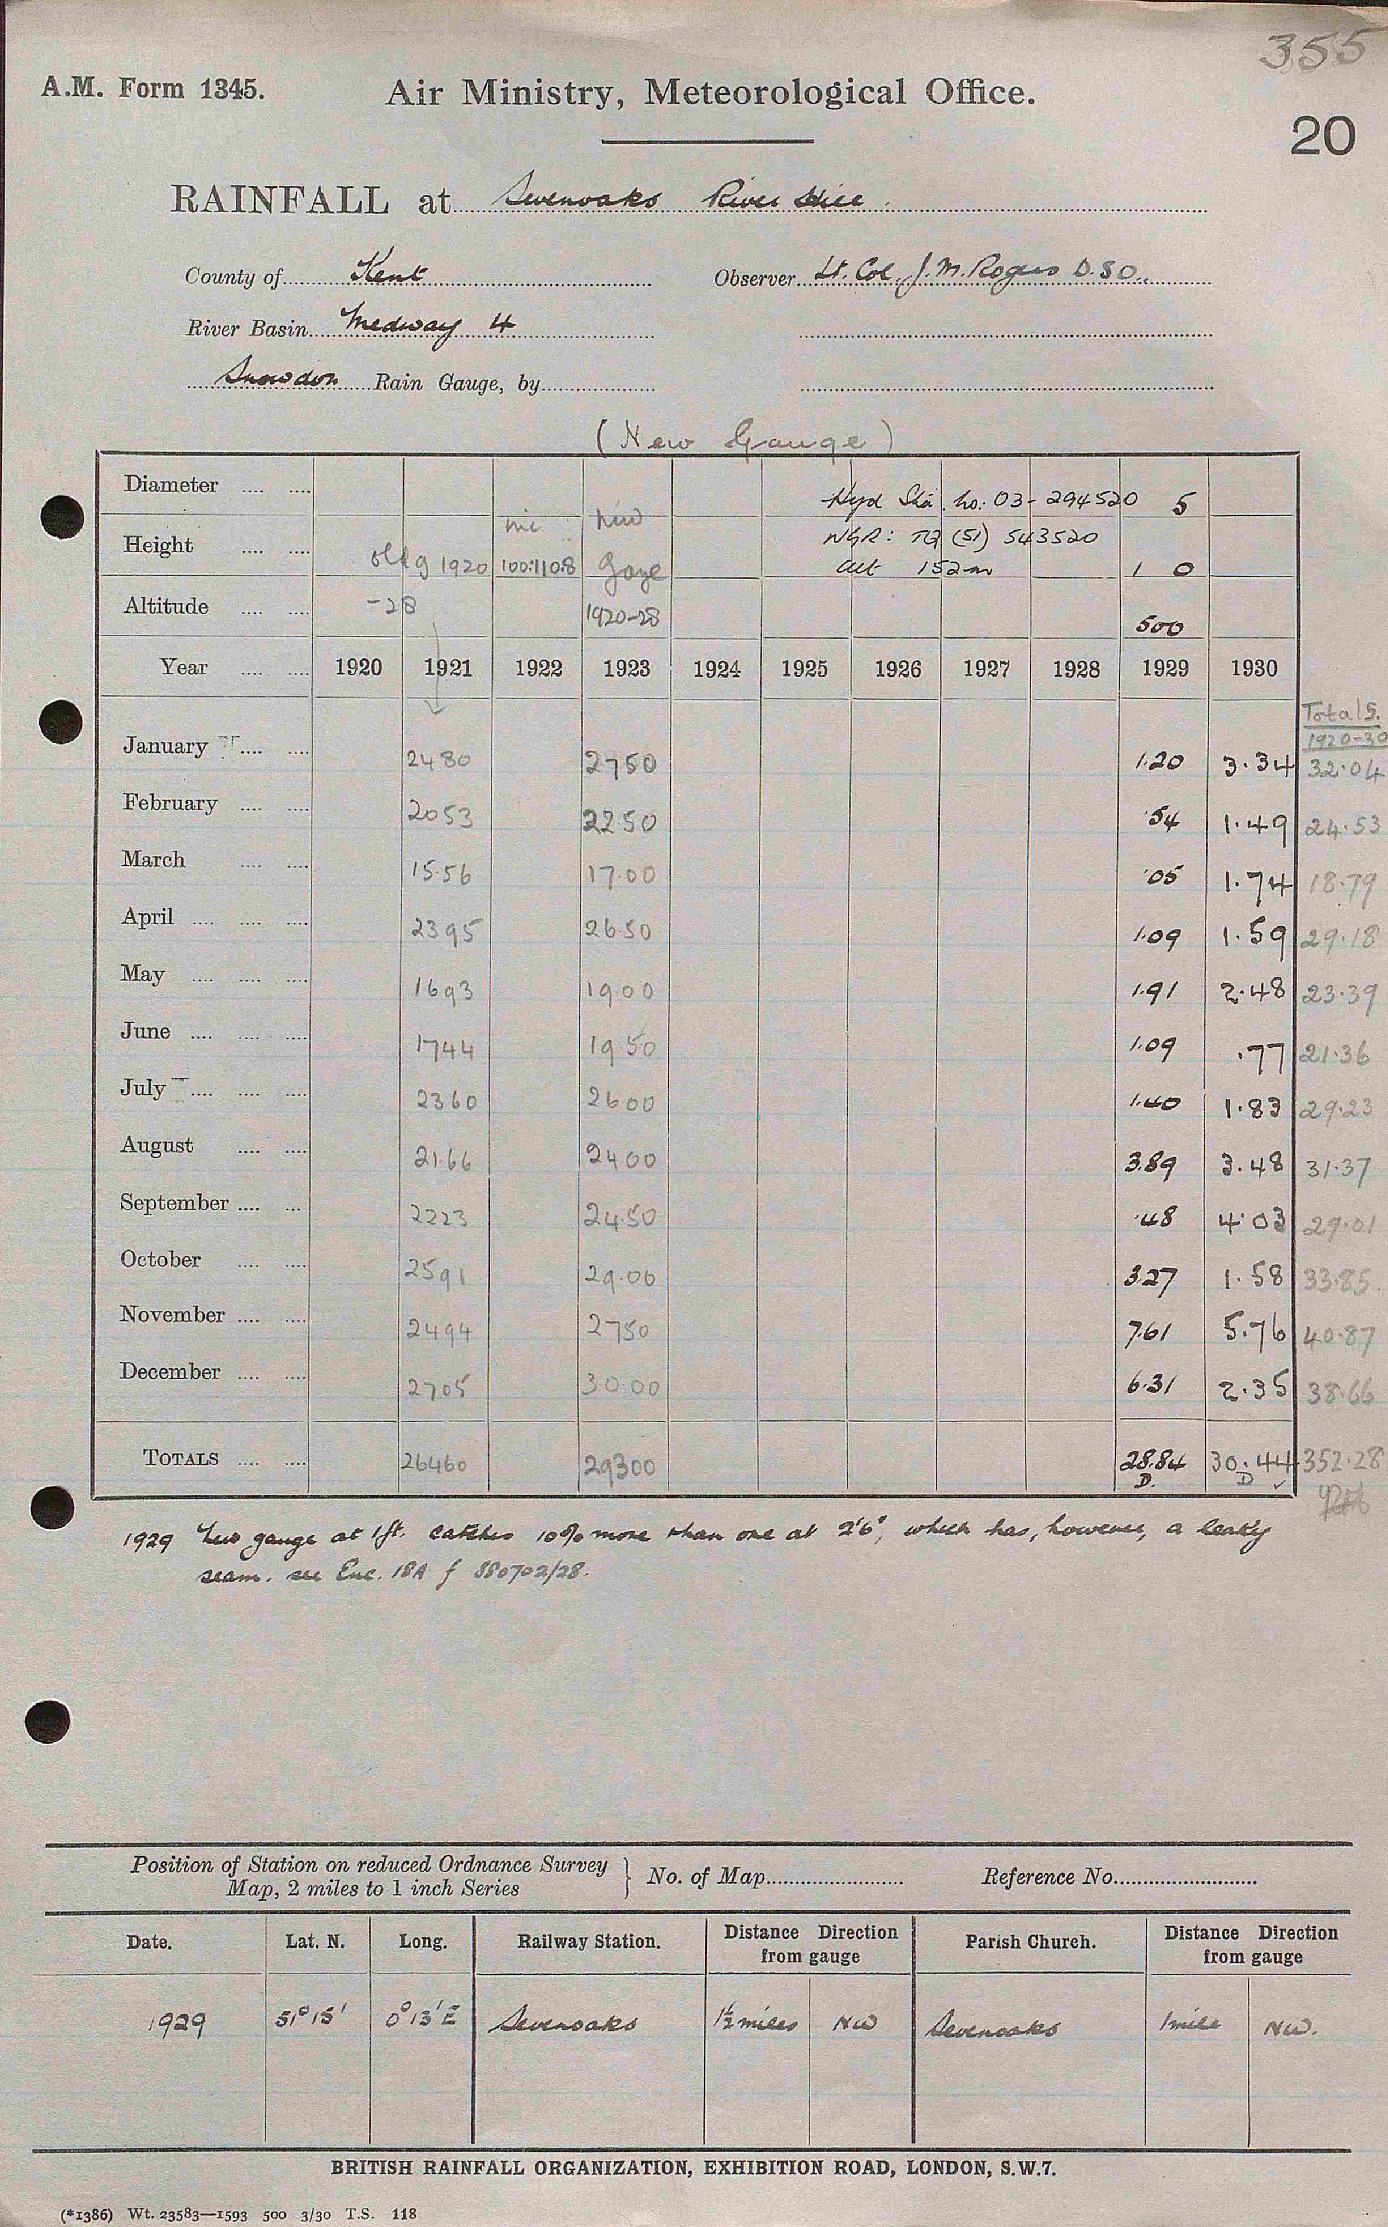 355
A.M. Form 1345. Air Ministry, Meteorological Office.
20
RAINFALL at Sevenoaks River Hill.
County of Kent Observer Lt. Col. J. M. Rogers D.S.O.
River Basin Medway 4
Snowdon Rain Gauge, by
(New Gauge)
Diameter Hyd Sta. no: 03-294520 5
Height old g 1920 100:110.8 New Gauge NGR: TQ (51) 543520 alt 152m 1 0
Altitude -28 1920-28 500
Year 1920 1921 1922 1923 1924 1925 1926 1927 1928 1929 1930
Totals. 1920-30
January 2480 2750 1.20 3.34 32.04
February 2053 2250 .54 1.49 24.53
March 15.56 17.00 .05 1.74 18.79
April 2395 26.50 1.09 1.59 29.18
May 1693 1900 1.91 2.48 23.39
June 1744 19.50 1.09 .77 21.36
July 2360 2600 1.40 1.83 29.23
August 21.66 2400 3.89 3.48 31.37
September 2223 24.50 .48 4.03 29.01
October 2591 29.00 3.27 1.58 33.85
November 2494 2750 7.61 5.76 40.87
December 2705 30.00 6.31 2.35 38.66
TOTALS 26460 29300 28.84 30.44 352.28
D. D ✓
1929 New gauge at 1ft. catches 10% more than one at 2'6", which has, however, a leaky
seam. see Enc. 18A f 880702/28.
Position of Station on reduced Ordnance Survey
Map, 2 miles to 1 inch Series } No. of Map Reference No.
Date. Lat. N. Long. Railway Station. Distance Direction from gauge Parish Church. Distance Direction from gauge
1929 51° 15' 0° 13' E Sevenoaks 1½ miles NW Sevenoaks 1 mile NW.
BRITISH RAINFALL ORGANIZATION, EXHIBITION ROAD, LONDON, S.W.7.
(*1386) Wt. 23583—1593 500 3/30 T.S. 118